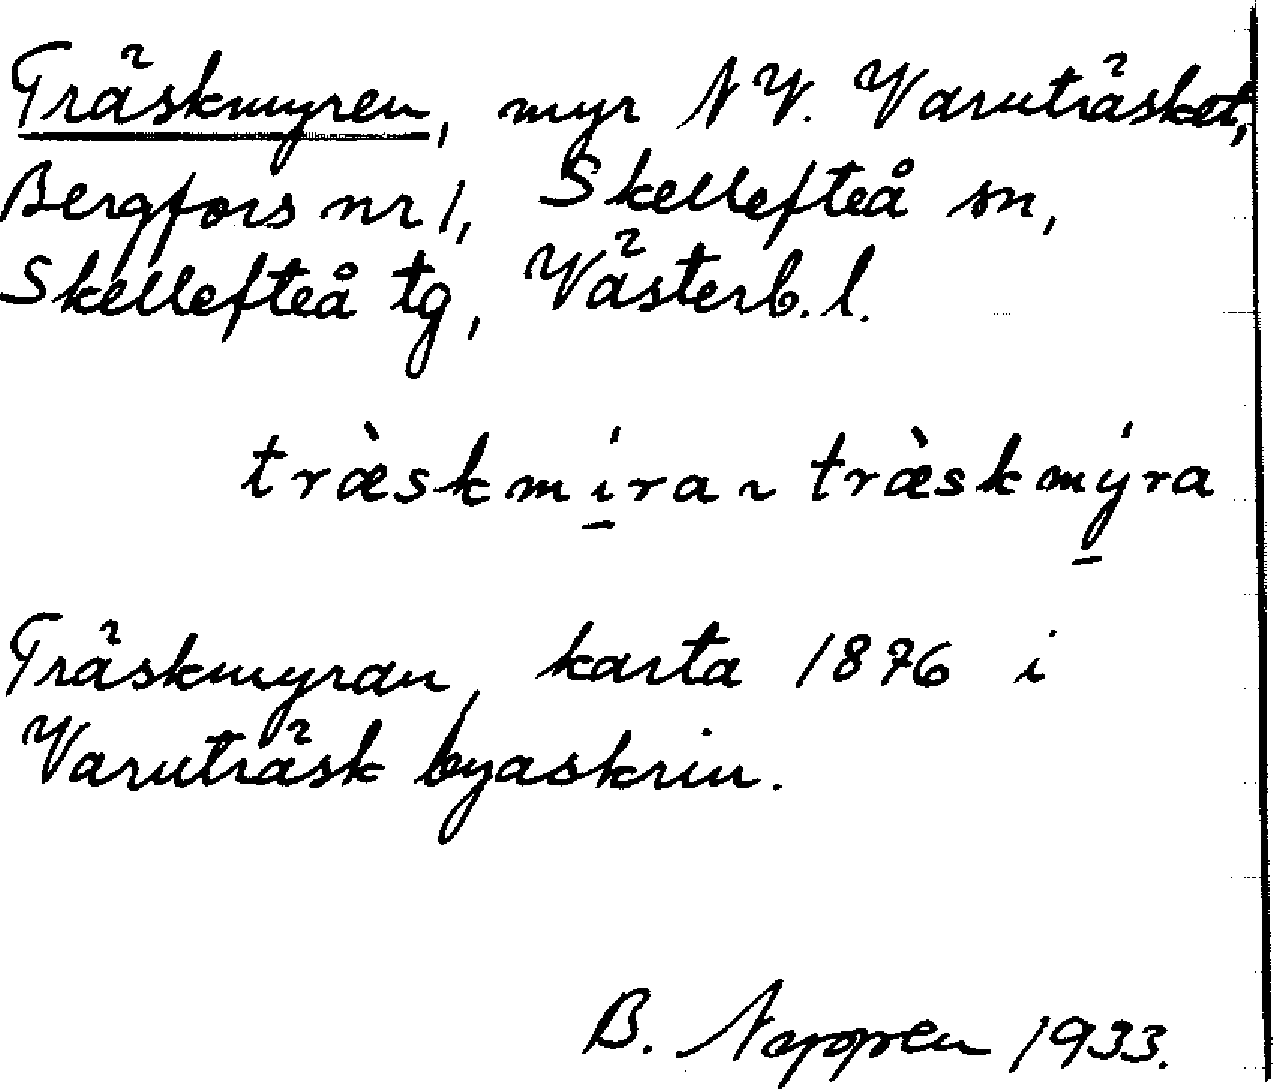 Träskmyren, myr NV. Varuträsket,
Bergfors nr 1, Skellefteå sn,
Skellefteå tg, Västerb. l.
træ̀skmí̱ra ~ træ̀skmý̱ra
Träskmyran, karta 1876 i
Varuträsk byaskrin.
B. 1933.